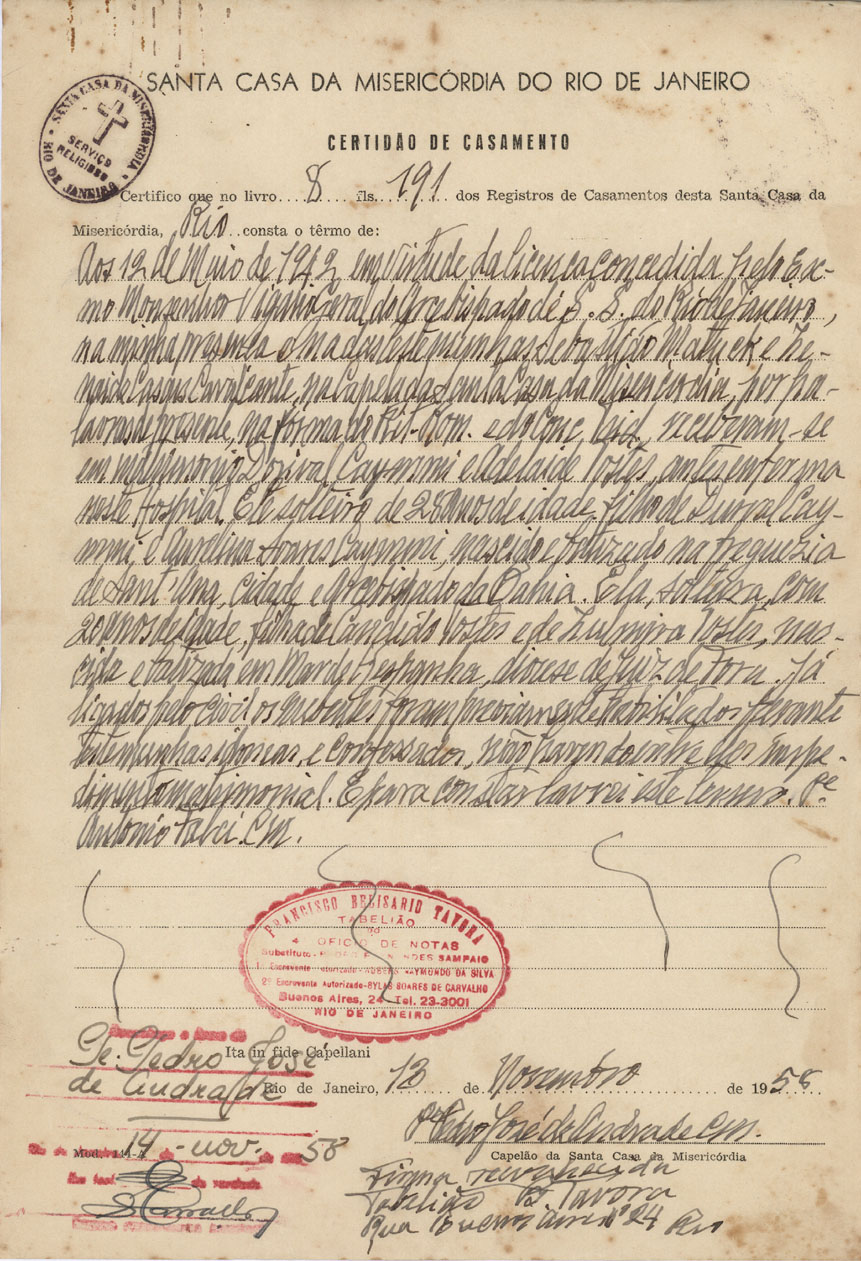 SANTA CASA DA MISERICÓRDIA DO RIO DE JANEIRO
SANTA CASA DA MISERICORDIA
SERVIÇO
RELIGIOSO
RIO DE JANEIRO
CERTIDÃO DE CASAMENTO
Certifico que no livro 8 fls. 191 dos Registros de Casamentos desta Santa Casa da
Misericórdia, Rio consta o têrmo de:
Aos 12 de Maio de 1942, em virtude da licença concedida pelo Ex-
mo Monsenhor Vigario Geral do Arcebispado de S. S. do Rio de Janeiro,
na minha presença e na das testemunhas Sebastião e Ze-
naide Cavalcante, na Capela da Santa Casa da Misericórdia, por pa-
lavras de presente, na forma do Rit. Rom. e do Conc. Trid., receberam-se
em matrimonio Dorival Caymmi e Adelaide Tostes, antes enferma
neste Hospital. Ele solteiro de 28 anos de idade, filho de Durval Cay-
mmi e Aurelina Soares Caymmi, nascido e batizado na freguezia
de Sant'Ana, cidade e Arcebispado da Bahia. Ela, solteira, com
20 anos de idade, filha de Candido Tostes e de Zulmira Tostes, nas-
cida e batizada em Mar de Hespanha, diocese de Juiz de Fora. Já
ligados pelo civil os nubentes foram previamente habilitados perante
testemunhas idoneas, e confessados, não havendo entre eles impe-
dimento matrimonial. E para constar lavrei este termo. Pe.
Antonio CM.
FRANCISCO BELISARIO TAVORA
TABELIÃO
do
4 OFICIO DE NOTAS
Substituto- SAMPAIO
1º Escrevente Autorizado- RUBENS RAYMUNDO DA SILVA
2º Escrevente Autorizado-SYLAS SOARES DE CARVALHO
Buenos Aires, 24 Tel. 23-3001
RIO DE JANEIRO
Ita in fide Capellani
Pe. Pedro José
de Andrade
Rio de Janeiro, 13 de Novembro de 1958
Pe Pedro José de Andrade CM.
Capelão da Santa Casa da Misericórdia
Mod. 141-A
14 - nov. 58
da verdade
Firma reconhecida
Tabelião B. Tavora
Rua Buenos Aires nº 24 Rio